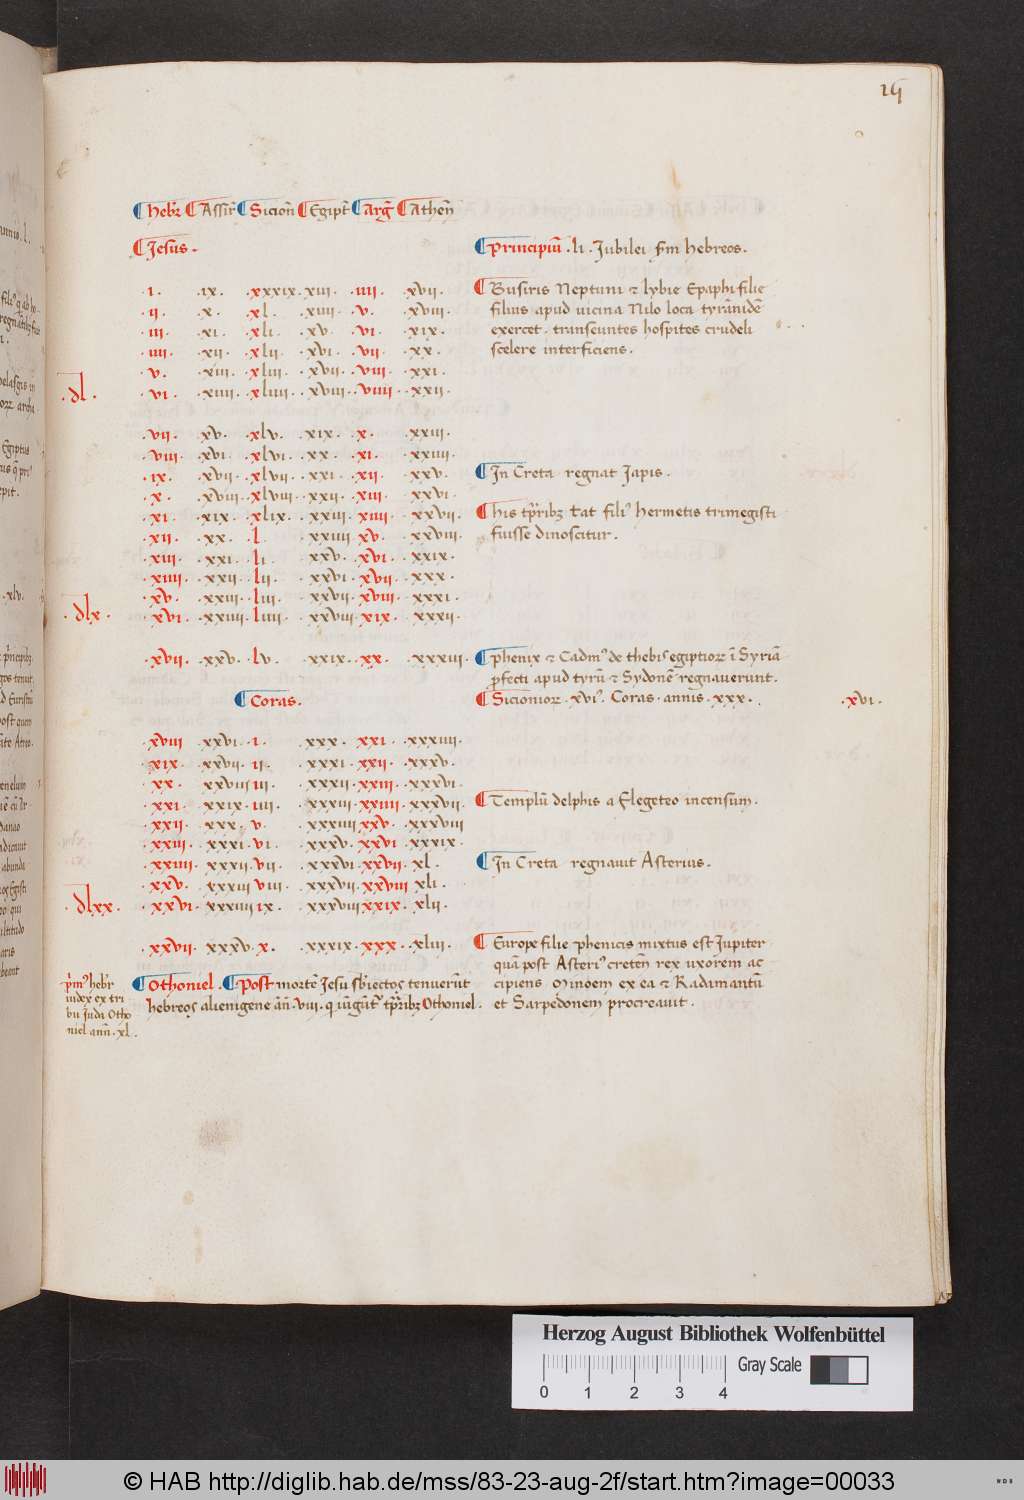 19
Hebr̄ Assir̄ Sicion̄ Egipt̄ Arḡ Athen̄
Jesus.
Principiū .li. Jubilei s̄m hebreos.
.i. .ix. .xxxix. .xiii. .iiii. .xvii.
Busiris Neptuni ⁊ lybie Epaphi filie
.ii. .x. .xl. .xiiii. .v. .xviii.
filius apud uicina Nilo loca tyrānidē
.iii. .xi. .xli. .xv. .vi. .xix.
exercet. transeuntes hospites crudeli
.iiii. .xii. .xlii. .xvi. .vii. .xx.
scelere interficiens.
.v. .xiii. .xliii. .xvii. .viii. .xxi.
.dl. .vi. .xiiii. .xliiii. .xviii. .viiii. .xxii.
.vii. .xv. .xlv. .xix. .x. .xxiii.
.viii. .xvi. .xlvi. .xx. .xi. .xxiiii.
.ix. .xvii. .xlvii. .xxi. .xii. .xxv.
In Creta regnat Japis.
.x. .xviii. .xlviii. .xxii. .xiii. .xxvi.
.xi. .xix. .xlix. .xxiii. .xiiii. .xxvii.
his tp̄ribꝫ tat filiꝰ hermetis trimegisti
.xii. .xx. .l. .xxiiii. .xv. .xxviii.
fuisse dinoscitur.
.xiii. .xxi. .li. .xxv. .xvi. .xxix.
.xiiii. .xxii. .lii. .xxvi. .xvii. .xxx.
.xv. .xxiii. .liii. .xxvii. .xviii. .xxxi.
.dlx. .xvi. .xxiiii. .liiii. .xxviii. .xix. .xxxii.
.xvii. .xxv. .lv. .xxix. .xx. .xxxiii.
phenix ⁊ Cadmꝰ de thebis egiptioꝝ ī Syriā
ꝓfecti apud tyrū ⁊ Sydonē regnauerunt.
Coras.
Sicionioꝝ .xviꝰ. Coras. annis .xxx.
.xvi.
.xviii. .xxvi. .i. .xxx. .xxi. .xxxiiii.
.xix. .xxvii. .ii. .xxxi. .xxii. .xxxv.
.xx. .xxviii. .iii. .xxxii. .xxiii. .xxxvi.
.xxi. .xxix. .iiii. .xxxiii. .xxiiii. .xxxvii.
Templū delphis a flegeteo incensum.
.xxii. .xxx. .v. .xxxiiii. .xxv. .xxxviii
.xxiii. .xxxi. .vi. .xxxv. .xxvi .xxxix.
.xxiiii. .xxxii. .vii. .xxxvi .xxvii. .xl.
In Creta regnauit Asterius.
.xxv. .xxxiii .viii. .xxxvii. .xxviii .xli.
.dlxx. .xxvi. .xxxiiii .ix. .xxxviii .xxix. .xlii.
.xxvii. .xxxv. .x. .xxxix. .xxx. .xliii.
Europe filie phenicis mixtus est Jupiter
quā post Asteriꝰ cretēn rex uxorem ac
cipiens Minoem ex ea ⁊ Radamantū
et Sarpedonem procreauit.
p̄mꝰ hebr̄
iudex ex tri
bu Juda Otho
niel ann̄ .xl.
Othoniel. Post mortē Jesu sb̄iectos tenuerūt
hebreos alienigene ān̄ .viii. q̄ iūgūt̄ tp̄ribꝫ Othoniel.
Herzog August Bibliothek Wolfenbüttel
Gray Scale
0 1 2 3 4
© HAB http://diglib.hab.de/mss/83-23-aug-2f/start.htm?image=00033